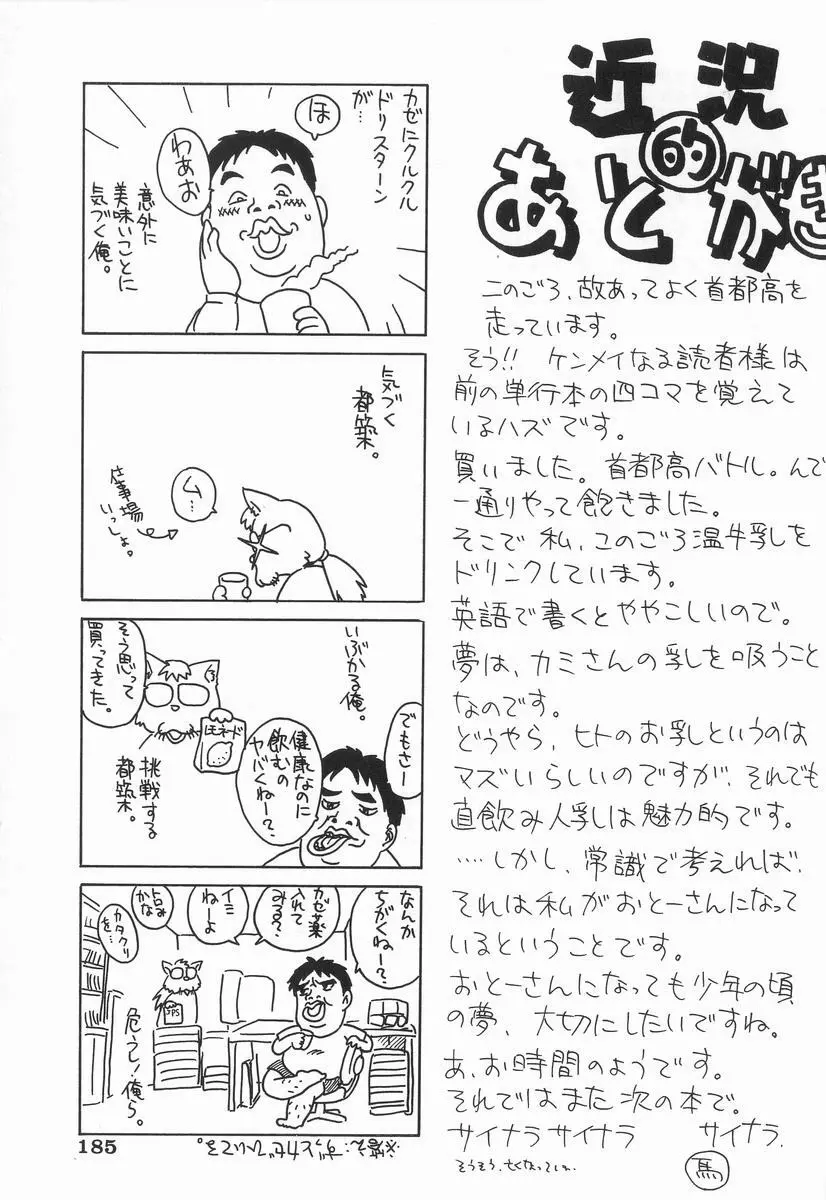 近況
的
あとがき
このごろ、故あってよく首都高を
走っています。
そう!! ケンメイなる読者様は
前の単行本の四コマを覚えて
いるハズです。
買いました。首都高バトル。んで
一通りやって飽きました。
そこで私、このごろ温牛乳を
ドリンクしています。
英語で書くとややこしいので。
夢は、カミさんの乳を吸うこと
なのです。
どうやら、ヒトのお乳というのは
マズいらしいのですが、それでも
直飲み人乳は魅力的です。
‥‥しかし、常識で考えれば、
それは私がおとーさんになって
いるということです。
おとーさんになっても少年の頃
の夢、大切にしたいですね。
あ、お時間のようです。
それではまた次の本で。
サイナラ サイナラ サイナラ.
馬
カゼにクルクル
ドリスターン
が…
ほ
わぁお
意外に
美味いことに
気づく俺。
気づく
都築。
ム…
仕事場
いっしょ。
いぶかる俺。
でもさー
健康なのに
飲むの
ヤバくねー?
レモネード
そう思って
買ってきた。
挑戦する
都築。
なんか
ちがくねー?
カゼ薬
入れて
みる?
イミ
ねーよ
カタクリ
を…
JPS
危うし!俺ら。
185